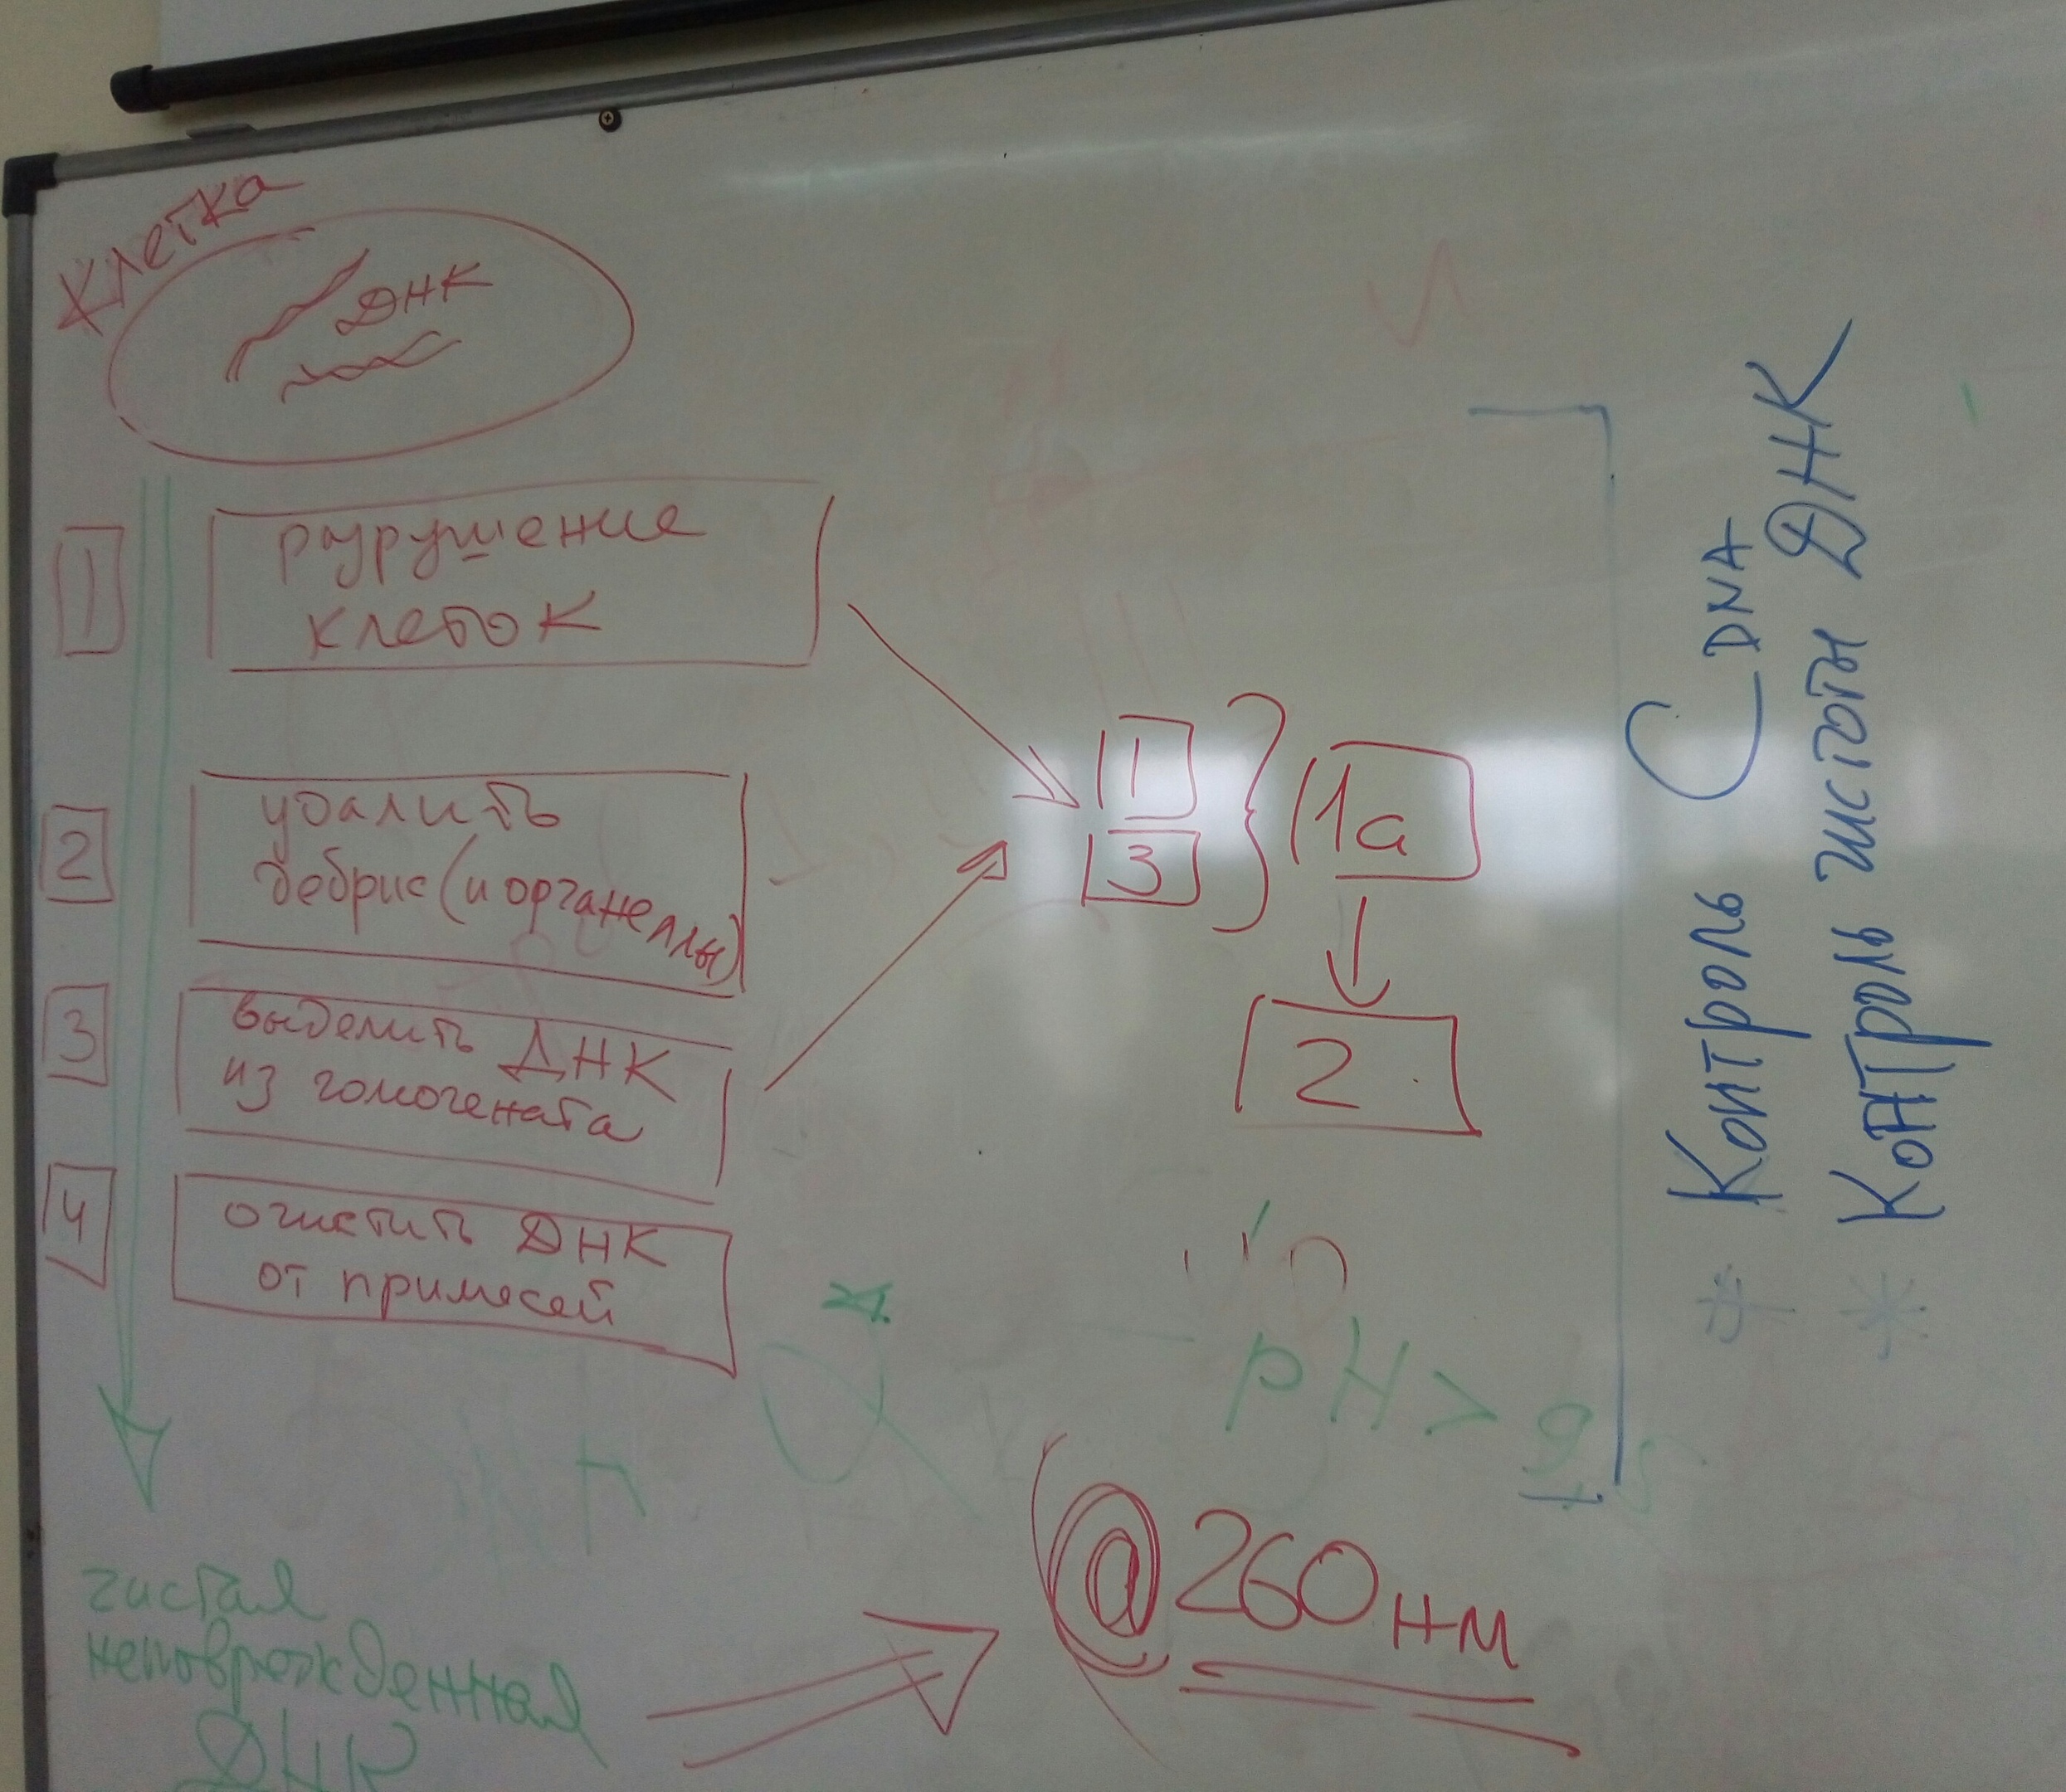 Клетка
ДНК
1
разрушение
клеток
2
удалить
дебрис (и органеллы)
3
выделить ДНК
из гомогената
4
очистить ДНК
от примесей
чистая
неповрожденная
ДНК
1
3
1а
2
pH > 9
@ 260 нм
* Контроль C DNA
* Контроль чистоты ДНК